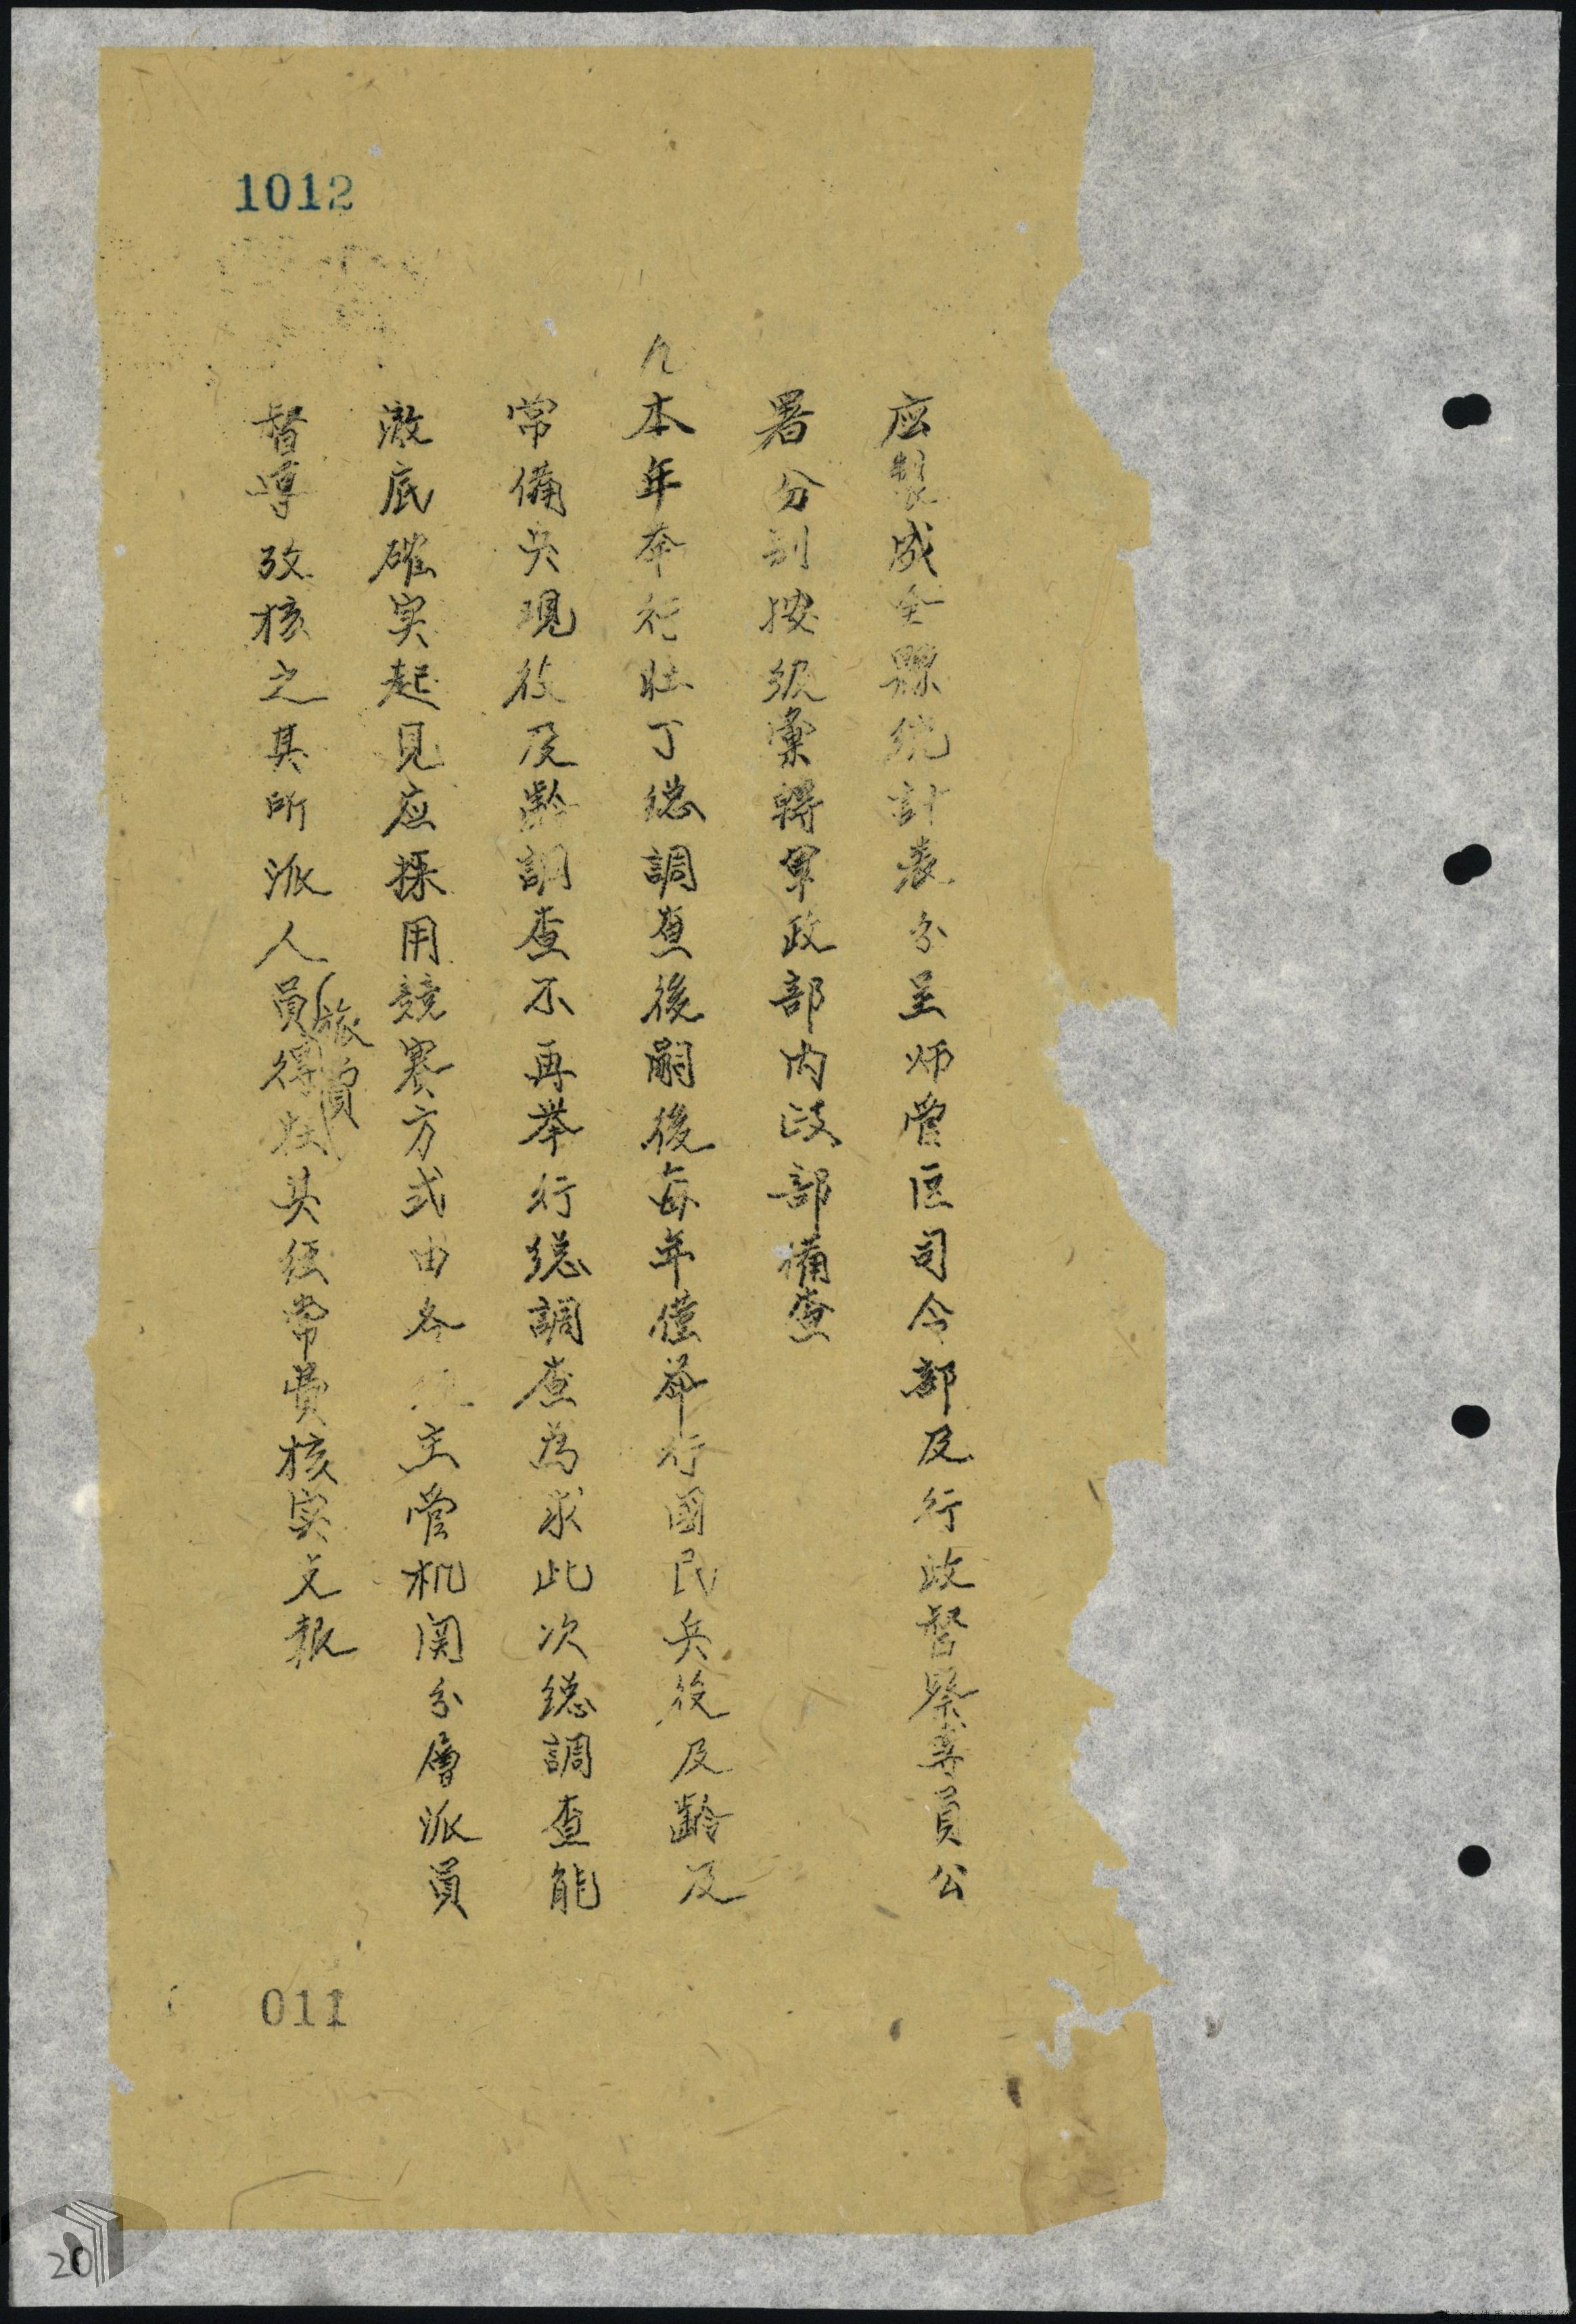 1012
应製成全縣统計表分呈师管区司令部及行政督察專員公
署分别按级彙轉軍政部内政部備查
八本年奉行壯丁總調查後嗣後每年僅举行國民兵役及齡及
常備兵現役及齡調查不再举行總調查為求此次總調查能
澈底確实起見应採用競赛方式由各级主管机関分層派員
督導攷核之其所派人員得在其经常費核实支報
旅費
011
20